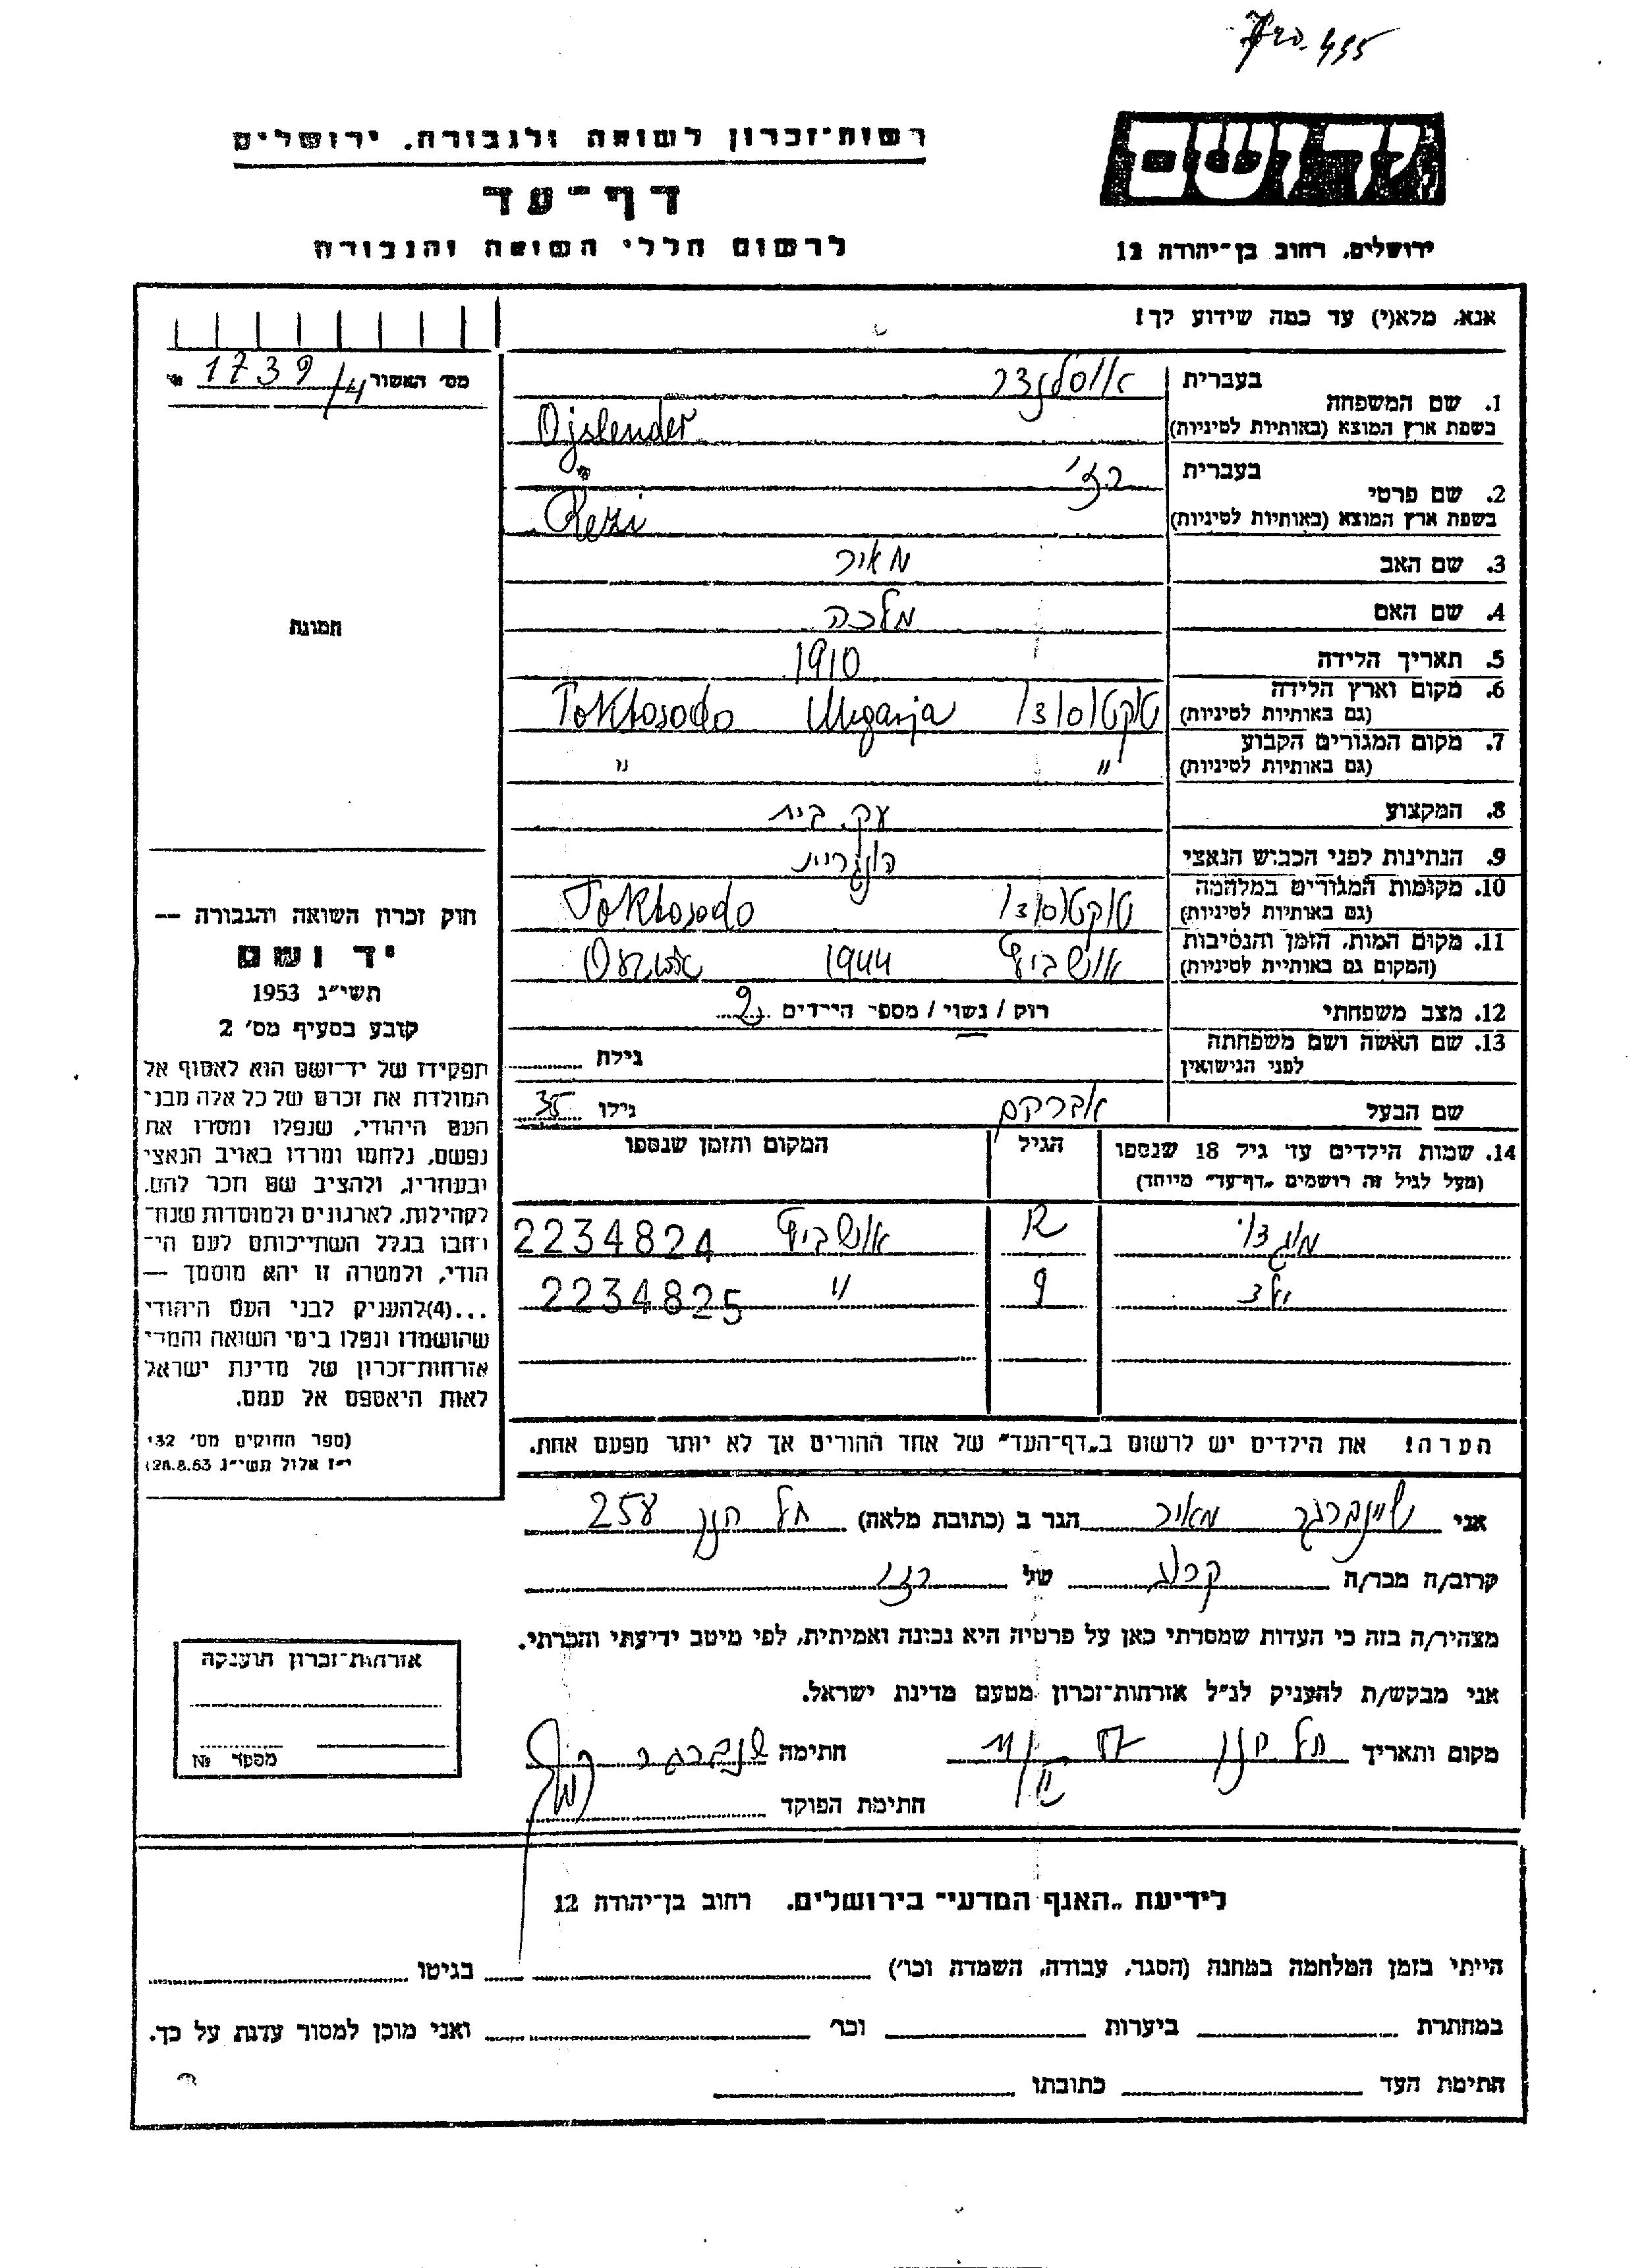 רשות־זכרון לשואה ולגבורה, ירושלים
יד ושם
דף־עד
לרשום חללי השואה והגבורה
ירושלים, רחוב בן־יהודה 12
אנא, מלא(י) עד כמה שידוע לך!
מס׳ האשור 1739/4
בעברית
1. שם המשפחה
בשפת ארץ המוצא (באותיות לטיניות) Ojslender
בעברית רזי
2. שם פרטי
בשפת ארץ המוצא (באותיות לטיניות) Rezi
3. שם האב מאיר
4. שם האם מלכה
תמונה
5. תאריך הלידה 1910
6. מקום וארץ הלידה
(גם באותיות לטיניות) Toktosodo
7. מקום המגורים הקבוע
(גם באותיות לטיניות) " "
8. המקצוע עק. בית
9. הנתינות לפני הכבוש הנאצי הונגרית
10. מקומות המגורים במלחמה
(גם באותיות לטיניות) Toktosodo
11. מקום המות, הזמן והנסיבות
(המקום גם באותיות לטיניות) אושביץ 1944
12. מצב משפחתי רוק / נשוי / מספר הילדים 2
13. שם האשה ושם משפחתה
לפני הנישואין גילה
שם הבעל אברהם גילו 35
14. שמות הילדים עד גיל 18 שנספו הגיל המקום והזמן שנספו
(מעל לגיל זה רושמים „דף־עד״ מיוחד)
12 אושביץ 2234824
9 " 2234825
הערה! את הילדים יש לרשום ב„דף־העד״ של אחד ההורים אך לא יותר מפעם אחת.
חוק זכרון השואה והגבורה —
יד ושם
תשי״ג 1953
קובע בסעיף מס׳ 2
תפקידו של יד־ושם הוא לאסוף אל
המולדת את זכרם של כל אלה מבני
העם היהודי, שנפלו ומסרו את
נפשם, נלחמו ומרדו באויב הנאצי
ובעוזריו, ולהציב שם וזכר להם,
לקהילות, לארגונים ולמוסדות שנח־
רבו בגלל השתייכותם לעם הי־
הודי, ולמטרה זו יהא מוסמך —
...(4)להעניק לבני העם היהודי
שהושמדו ונפלו בימי השואה והמרי
אזרחות־זכרון של מדינת ישראל
לאות היאספם אל עמם.
(ספר החוקים מס׳ 132
י״ז אלול תשי״ג 28.8.53)
אני שיינברגר מאיר הגר ב (כתובת מלאה) תל חנן 258
קרוב/ה מכר/ה קרוב של רזי
מצהיר/ה בזה כי העדות שמסרתי כאן על פרטיה היא נכונה ואמיתית, לפי מיטב ידיעתי והכרתי.
אני מבקש/ת להעניק לנ״ל אזרחות־זכרון מטעם מדינת ישראל.
מקום ותאריך תל חנן חתימה
חתימת הפוקד
אזרחות־זכרון הוענקה
מספר №
לידיעת „האגף המדעי״ בירושלים, רחוב בן־יהודה 12
הייתי בזמן המלחמה במחנה (הסגר, עבודה, השמדה וכו׳) בגיטו
במחתרת ביערות וכו׳ ואני מוכן למסור עדות על כך.
חתימת העד כתובתו